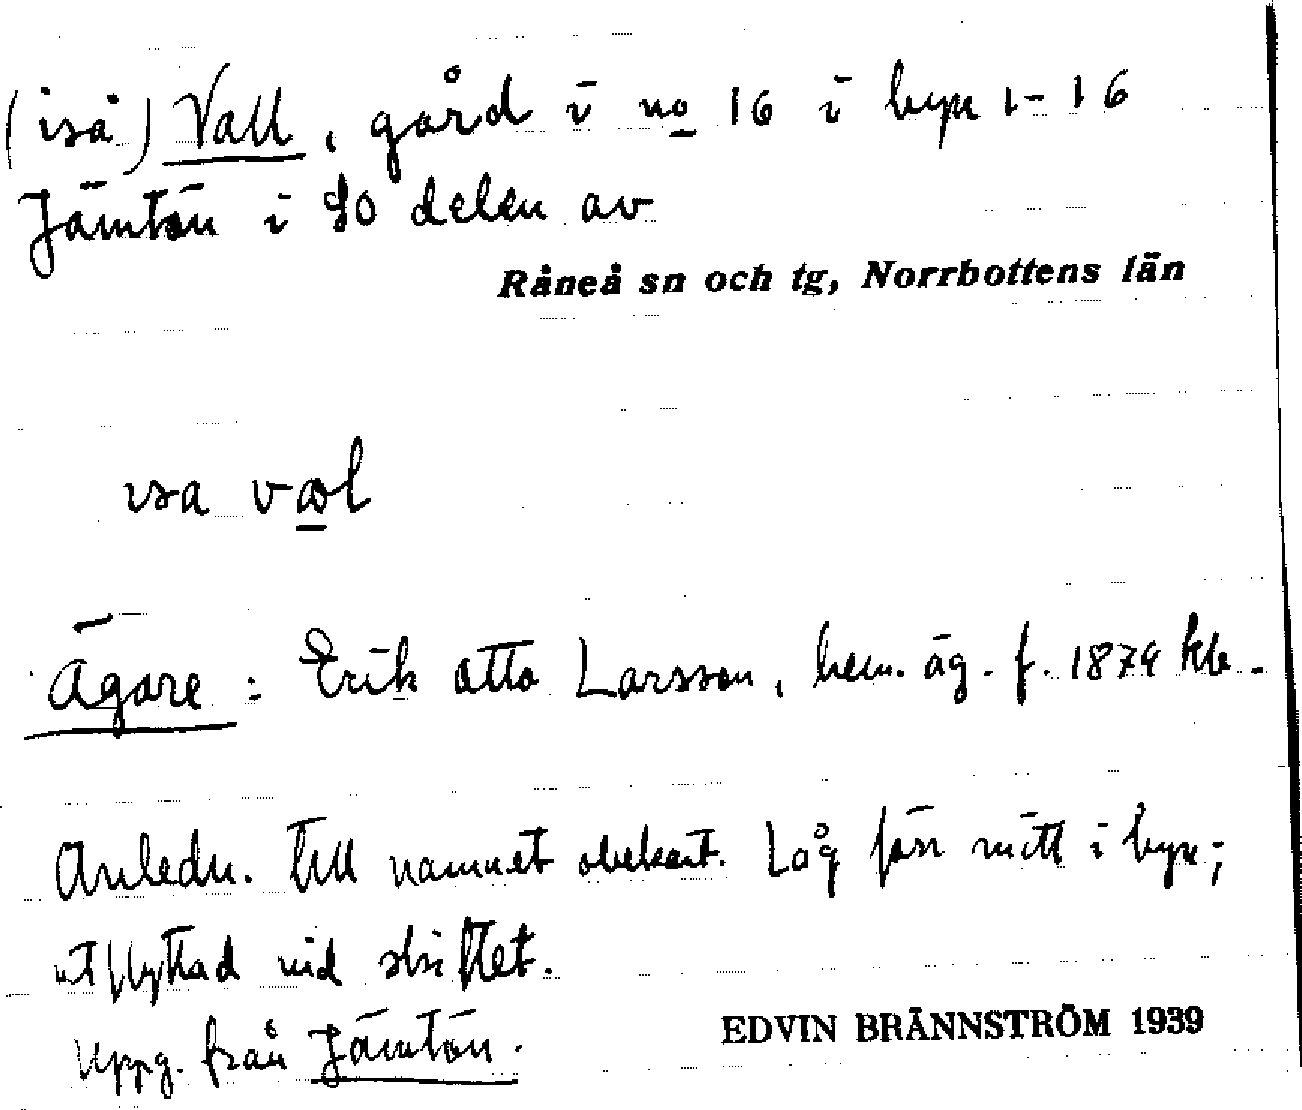 (isä) Vall, gård i no 16 i byn 1-16
Jämtön i SO delen av
Råneå sn och tg, Norrbottens län
isa val
Ägare: Erik Otto Larsson, hem. äg. f. 1874 hb.
Anledn. till namnet obekant. Låg förr mitt i byn;
utflyttad vid skiftet.
Uppg. från Jämtön.
EDVIN BRÄNNSTRÖM 1939